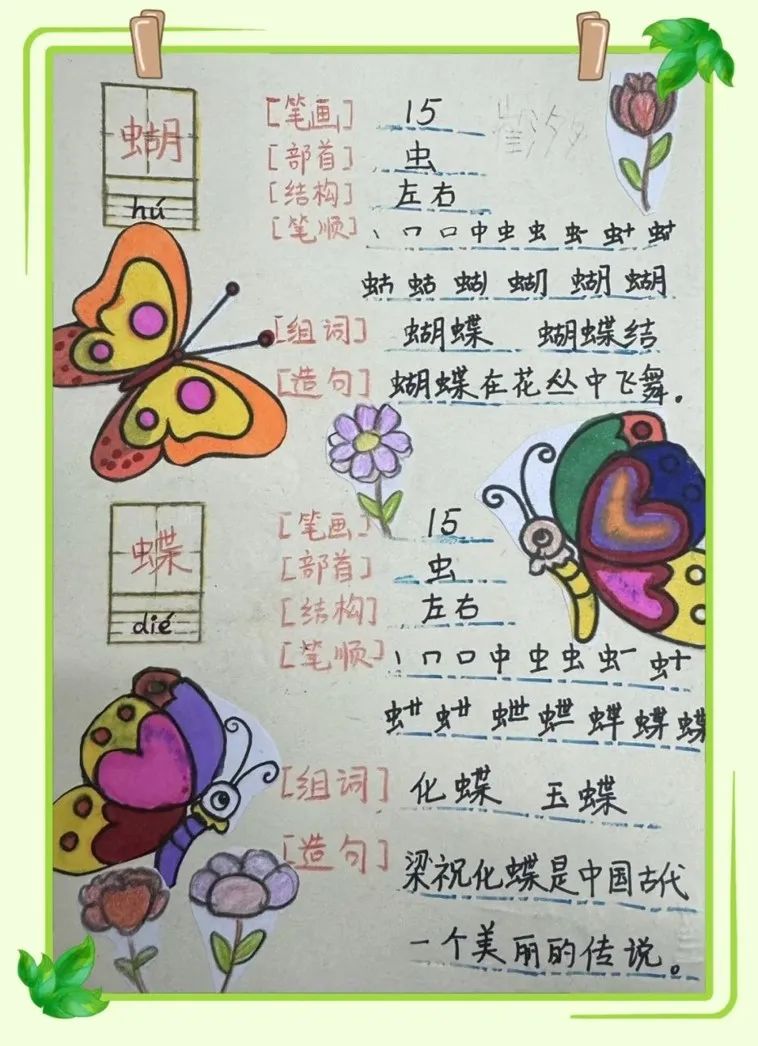 蝴
hú
[笔画] 15
[部首] 虫
[结构] 左右
[笔顺] 丶 冂 口 中 虫 虫 虫一 虫十 虫古
虫古 蛄 蝴 蝴 蝴 蝴
[组词] 蝴蝶 蝴蝶结
[造句] 蝴蝶在花丛中飞舞。
蝶
dié
[笔画] 15
[部首] 虫
[结构] 左右
[笔顺] 丶 冂 口 中 虫 虫 虫一 虫十
虫廿 虫廿 虫世 虫世 蝶 蝶 蝶
[组词] 化蝶 玉蝶
[造句] 梁祝化蝶是中国古代
一个美丽的传说。